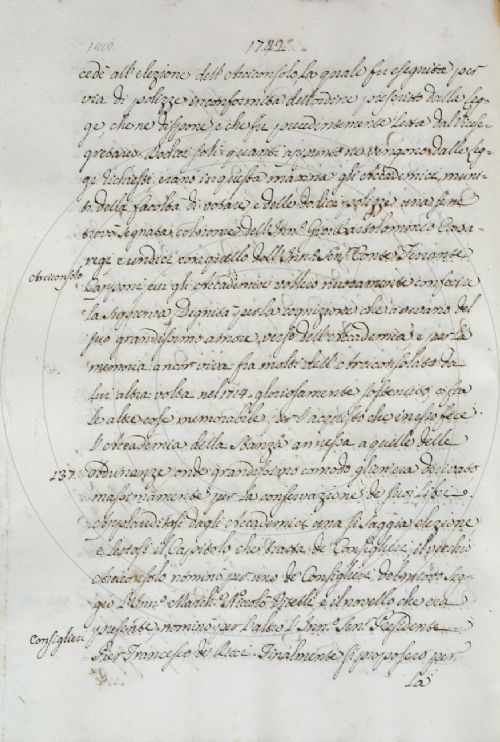 1742
cedè all'elezione dell'Arciconsolo, la quale fu eseguita per
via di polizze in conformità dell'ordine prescritto dalla leg-
ge, che ne dispone e che fu precedentemente letta dal Vicese-
gretario. Dodici soli quanti appunto ne vengono dalle leg-
gi richiesti erano in questa mattina gli Accademici muni-
ti della facoltà di votare e delle dodici polizze una se ne
trovò segnata col nome dell' Bartolommeo Casa-
regi e undici con quello dell' Sen.^e Conte Ferrante
Arciconsolo
Capponi cui gli Accademici vollero nuovamente conferire
la suprema Dignità per la cognizione che avevano del
suo grandissimo amore verso dell'Accademia e per la
memoria ancor viva fra molti dell'Arciconsolato da
lui altra volta nel 1714 gloriosamente sostenuto, e fra
le altre cose memorabile per l'acquisto che in esso fece
l'Accademia della Stanza annessa a quelle delle
137.
Adunanze onde grandissimo comodo gliene era derivato
massimamente per la conservazione de' suoi libri.
Applauditasi dagli Accademici una sì saggia elezione
e lettosi il Capitolo che tratta de' Consiglieri, il vecchio
Arciconsolo nominò per uno de' Consiglieri del nuovo Seg-
gio l'Ill.^mo e il novello che era
presente nominò per l'altro l'Ill.^mo Sen.^e Presidente
Consiglieri
Pier Francesco de' Ricci. Finalmente si proposero per
la